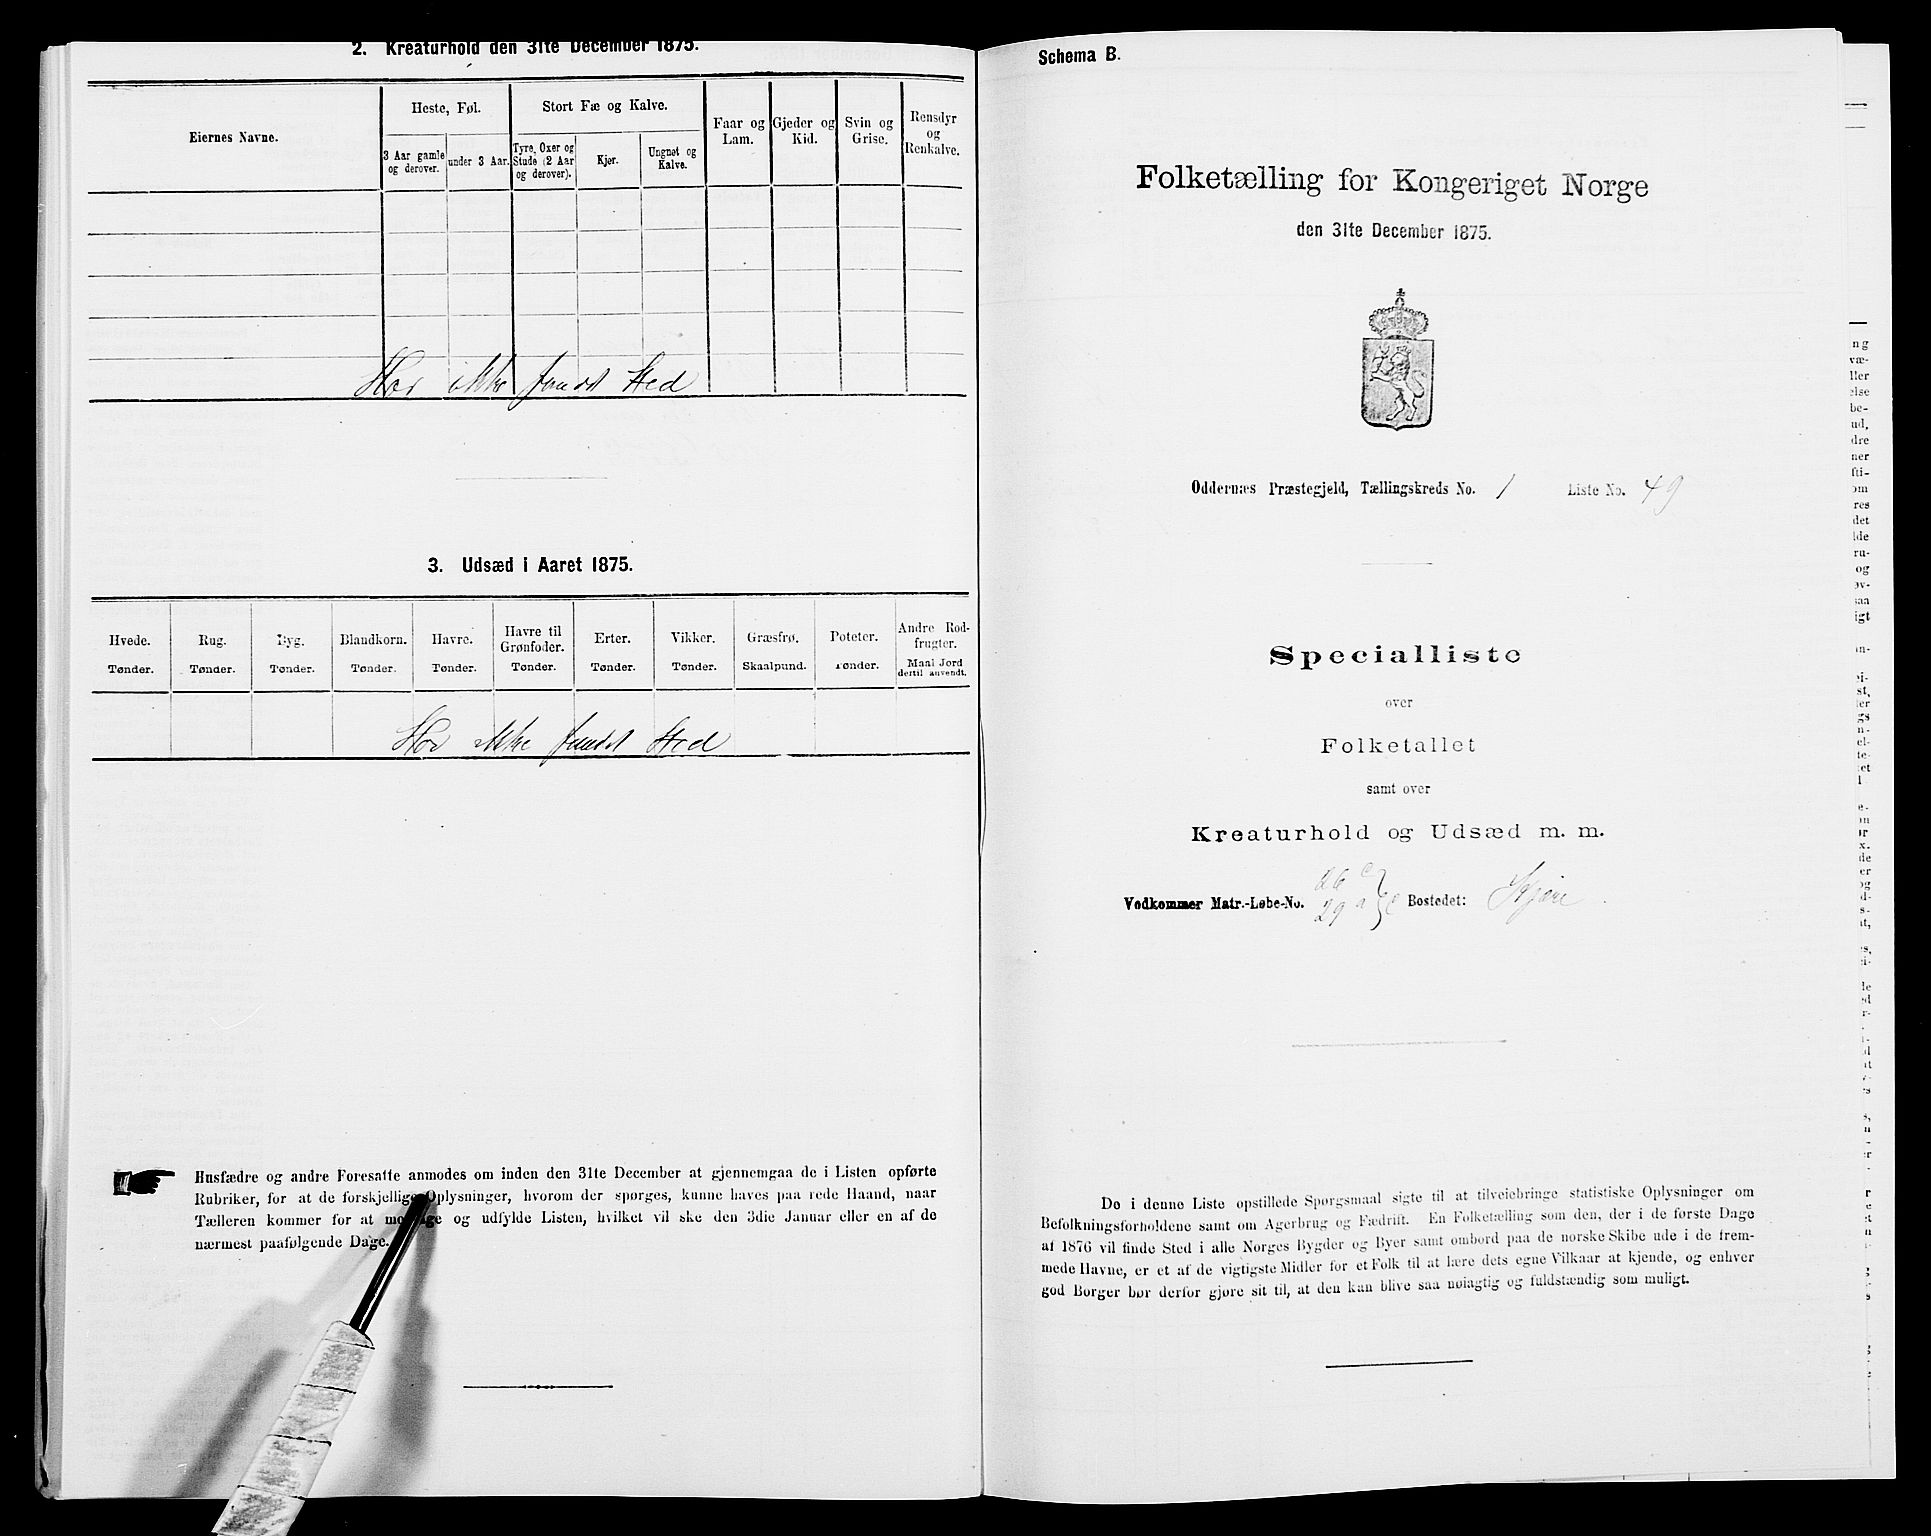 2. Kreaturhold den 31te December 1875.
Eiernes Navne.
Heste, Føl.
Stort Fæ og Kalve.
3 Aar gamle og derover.
under 3 Aar.
Tyre, Oxer og Stude (2 Aar og derover).
Kjør.
Ungnøt og Kalve.
Faar og Lam.
Gjeder og Kid.
Svin og Grise.
Rensdyr og Renkalve.
Har ikke fundet Sted
3. Udsæd i Aaret 1875.
Hvede. Rug. Byg. Blandkorn. Havre. Havre til Grønfoder. Erter. Vikker. Græsfrø. Poteter. Andre Rodfrugter.
Tønder. Tønder. Tønder. Tønder. Tønder. Tønder. Tønder. Tønder. Skaalpund. Tønder. Maal Jord dertil anvendt.
Har ikke fundet Sted
Husfædre og andre Foresatte anmodes om inden den 31te December at gjennemgaa de i Listen opførte
Rubriker, for at de forskjellige Oplysninger, hvorom der spørges, kunne haves paa rede Haand, naar
Tælleren kommer for at modtage og udfylde Listen, hvilket vil ske den 3die Januar eller en af de
nærmest paafølgende Dage.
Schema B.
Folketælling for Kongeriget Norge
den 31te December 1875.
Oddernæs Præstegjeld, Tællingskreds No. 1 Liste No. 49
Specialliste
over
Folketallet
samt over
Kreaturhold og Udsæd m. m.
26 c
Vedkommer Matr.-Løbe-No. 29 a Bostedet:
De i denne Liste opstillede Spørgsmaal sigte til at tilveiebringe statistiske Oplysninger om
Befolkningsforholdene samt om Agerbrug og Fædrift. En Folketælling som den, der i de første Dage
af 1876 vil finde Sted i alle Norges Bygder og Byer samt ombord paa de norske Skibe ude i de frem-
mede Havne, er et af de vigtigste Midler for et Folk til at lære dets egne Vilkaar at kjende, og enhver
god Borger bør derfor gjøre sit til, at den kan blive saa nøiagtig og fuldstændig som muligt.